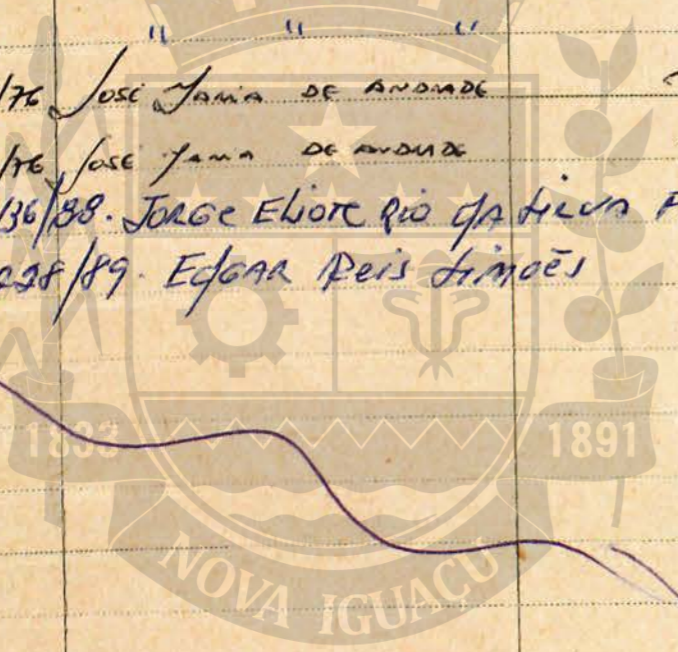 " " "
/76 José Maria DE ANDRADE
/76 José Maria DE ANDRADE
136/88. JORGE Eliote Rio dA Silva F
228/89. EdGAR Reis Simões
1833 1891
NOVA IGUAÇU